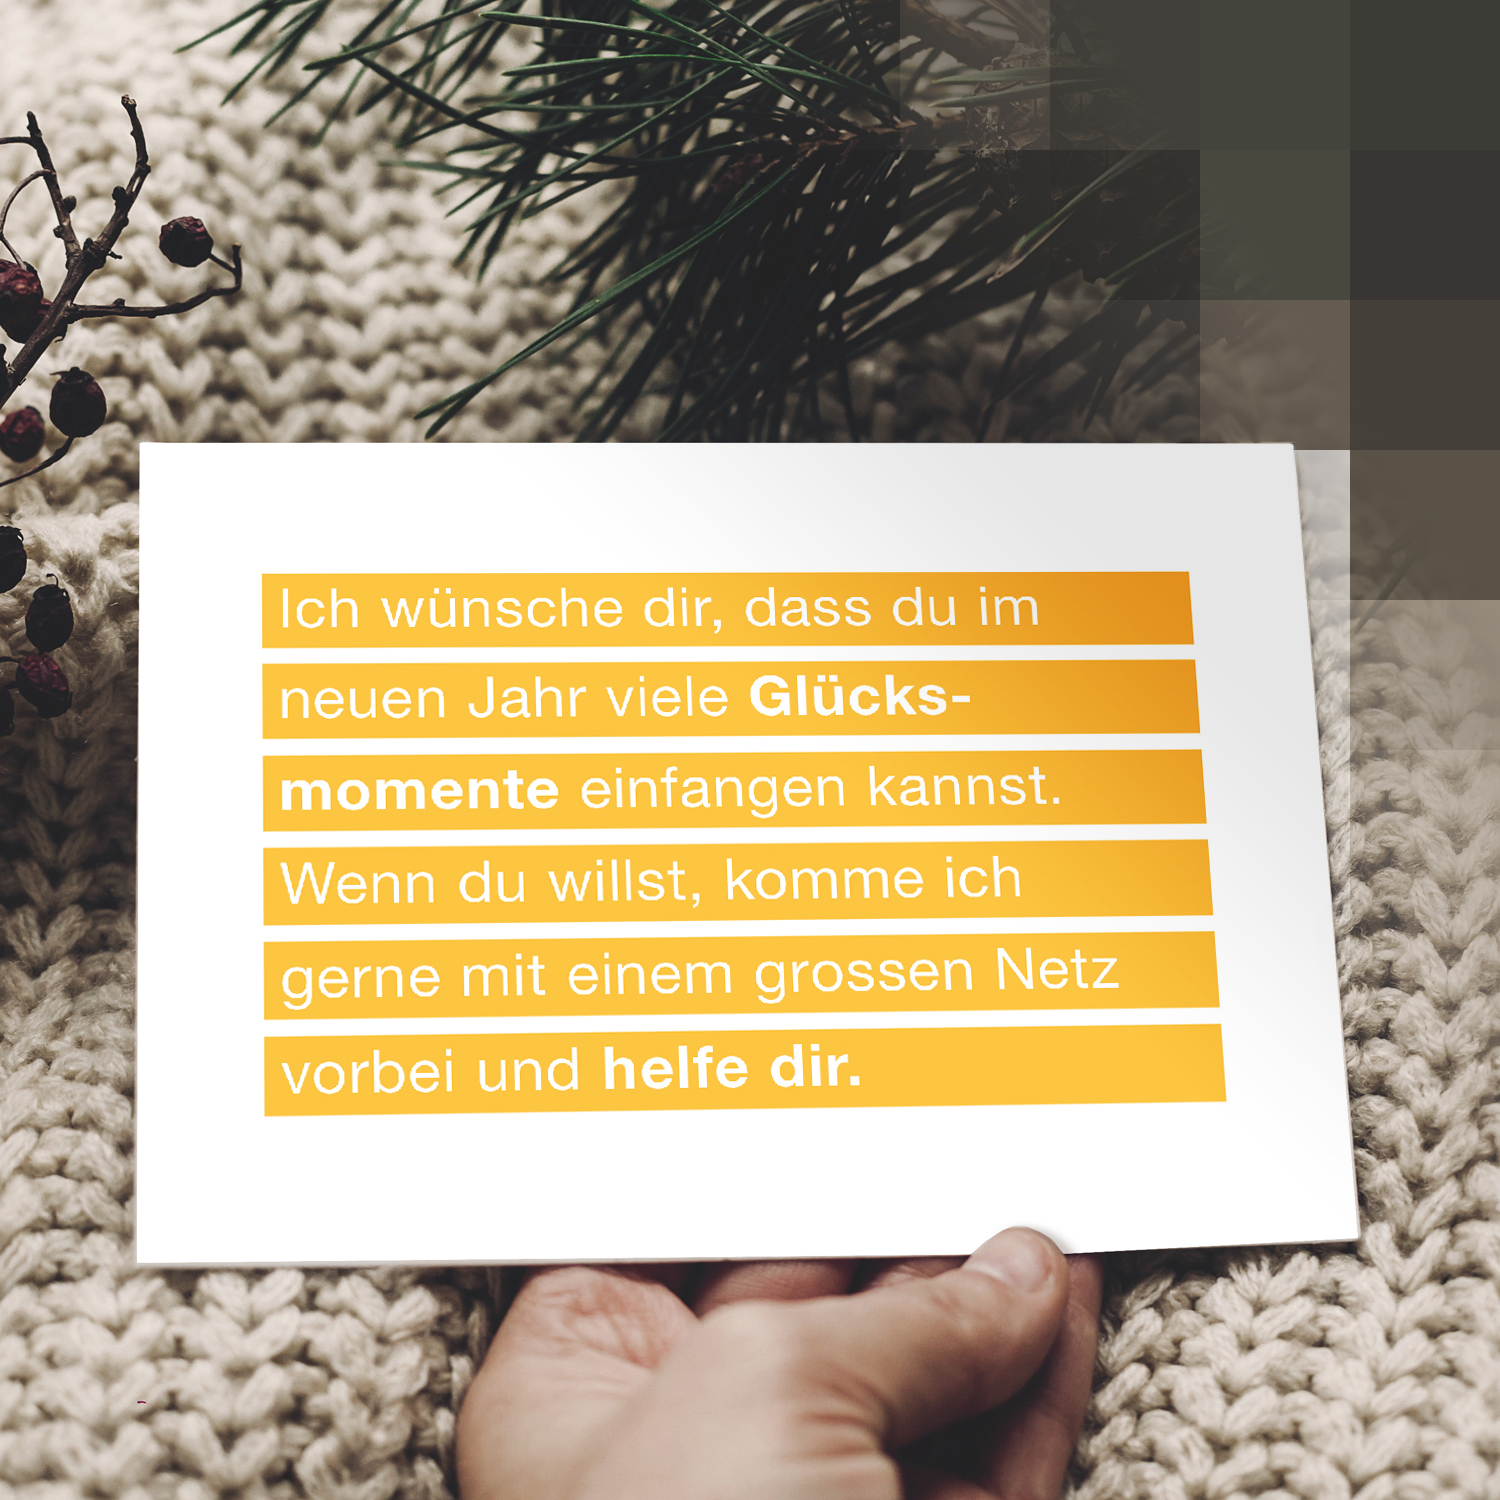 Ich wünsche dir, dass du im
neuen Jahr viele Glücks-
momente einfangen kannst.
Wenn du willst, komme ich
gerne mit einem grossen Netz
vorbei und helfe dir.